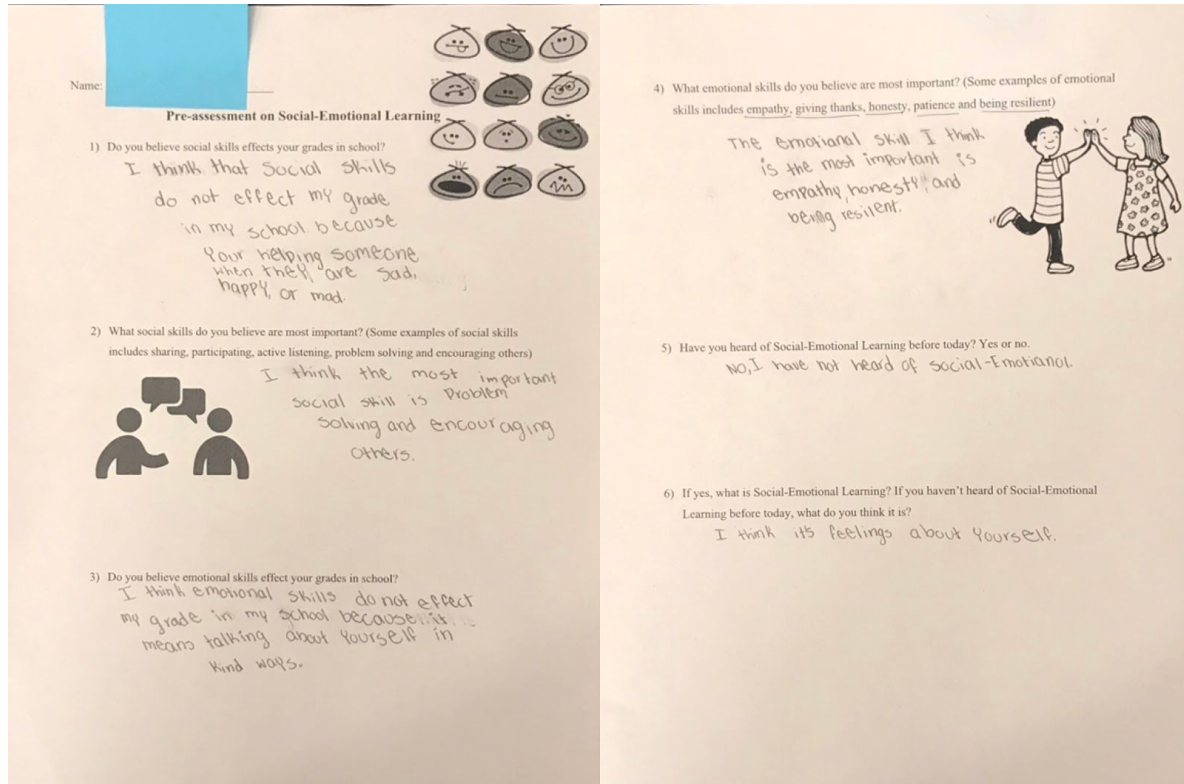 Name:
Pre-assessment on Social-Emotional Learning
1) Do you believe social skills effects your grades in school?
I think that Social Skills
do not effect my grade
in my school because
Your helping someone
when they are sad,
happy, or mad.
2) What social skills do you believe are most important? (Some examples of social skills
includes sharing, participating, active listening, problem solving and encouraging others)
I think the most important
social skill is Problem
Solving and encouraging
Others.
3) Do you believe emotional skills effect your grades in school?
I think emotional skills do not effect
my grade in my school because it
means talking about Yourself in
kind ways.
4) What emotional skills do you believe are most important? (Some examples of emotional
skills includes empathy, giving thanks, honesty, patience and being resilient)
The emotional skill I think
is the most important is
empathy, honesty, and
being resilent.
5) Have you heard of Social-Emotional Learning before today? Yes or no.
No, I have not heard of Social-Emotianol.
6) If yes, what is Social-Emotional Learning? If you haven't heard of Social-Emotional
Learning before today, what do you think it is?
I think it's feelings about Yourself.